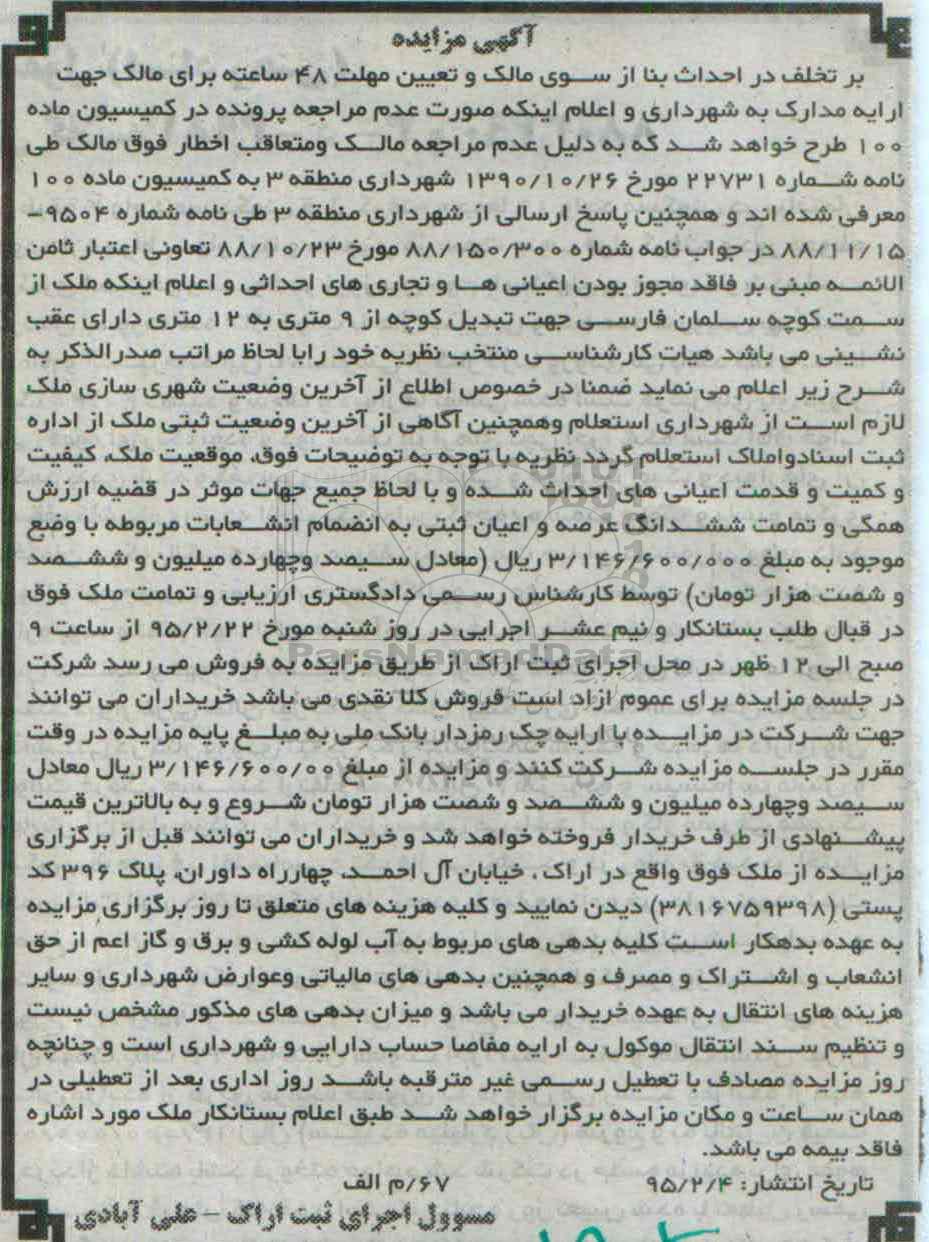 آگهی مزایده
بر تخلف در احداث بنا از سوی مالک و تعیین مهلت ۴۸ ساعته برای مالک جهت
ارایه مدارک به شهرداری و اعلام اینکه صورت عدم مراجعه پرونده در کمیسیون ماده
۱۰۰ طرح خواهد شد که به دلیل عدم مراجعه مالک ومتعاقب اخطار فوق مالک طی
نامه شماره ۲۲۷۳۱ مورخ ۱۳۹۰/۱۰/۲۶ شهرداری منطقه ۳ به کمیسیون ماده ۱۰۰
معرفی شده اند و همچنین پاسخ ارسالی از شهرداری منطقه ۳ طی نامه شماره ۹۵۰۴-
۸۸/۱۱/۱۵ در جواب نامه شماره ۸۸/۱۵۰/۳۰۰ مورخ ۸۸/۱۰/۲۳ تعاونی اعتبار ثامن
الائمه مبنی بر فاقد مجوز بودن اعیانی ها و تجاری های احداثی و اعلام اینکه ملک از
سمت کوچه سلمان فارسی جهت تبدیل کوچه از ۹ متری به ۱۲ متری دارای عقب
نشینی می باشد هیات کارشناسی منتخب نظریه خود رابا لحاظ مراتب صدرالذکر به
شرح زیر اعلام می نماید ضمنا در خصوص اطلاع از آخرین وضعیت شهری سازی ملک
لازم است از شهرداری استعلام وهمچنین آگاهی از آخرین وضعیت ثبتی ملک از اداره
ثبت اسنادواملاک استعلام گردد نظریه با توجه به توضیحات فوق، موقعیت ملک، کیفیت
و کمیت و قدمت اعیانی های احداث شده و با لحاظ جمیع جهات موثر در قضیه ارزش
همگی و تمامت ششدانگ عرصه و اعیان ثبتی به انضمام انشعابات مربوطه با وضع
موجود به مبلغ ۳/۱۴۶/۶۰۰/۰۰۰ ریال (معادل سیصد وچهارده میلیون و ششصد
و شصت هزار تومان) توسط کارشناس رسمی دادگستری ارزیابی و تمامت ملک فوق
در قبال طلب بستانکار و نیم عشر اجرایی در روز شنبه مورخ ۹۵/۲/۲۲ از ساعت ۹
صبح الی ۱۲ ظهر در محل اجرای ثبت اراک از طریق مزایده به فروش می رسد شرکت
در جلسه مزایده برای عموم ازاد است فروش کلا نقدی می باشد خریداران می توانند
جهت شرکت در مزایده با ارایه چک رمزدار بانک ملی به مبلغ پایه مزایده در وقت
مقرر در جلسه مزایده شرکت کنند و مزایده از مبلغ ۳/۱۴۶/۶۰۰/۰۰ ریال معادل
سیصد وچهارده میلیون و ششصد و شصت هزار تومان شروع و به بالاترین قیمت
پیشنهادی از طرف خریدار فروخته خواهد شد و خریداران می توانند قبل از برگزاری
مزایده از ملک فوق واقع در اراک، خیابان آل احمد، چهارراه داوران، پلاک ۳۹۶ کد
پستی (۳۸۱۶۷۵۹۳۹۸) دیدن نمایید و کلیه هزینه های متعلق تا روز برگزاری مزایده
به عهده بدهکار است کلیه بدهی های مربوط به آب لوله کشی و برق و گاز اعم از حق
انشعاب و اشتراک و مصرف و همچنین بدهی های مالیاتی وعوارض شهرداری و سایر
هزینه های انتقال به عهده خریدار می باشد و میزان بدهی های مذکور مشخص نیست
و تنظیم سند انتقال موکول به ارایه مفاصا حساب دارایی و شهرداری است و چنانچه
روز مزایده مصادف با تعطیل رسمی غیر مترقبه باشد روز اداری بعد از تعطیلی در
همان ساعت و مکان مزایده برگزار خواهد شد طبق اعلام بستانکار ملک مورد اشاره
فاقد بیمه می باشد.
تاریخ انتشار: ۹۵/۲/۴ ۶۷/م الف
مسوول اجرای ثبت اراک - علی آبادی
ParsNamadData